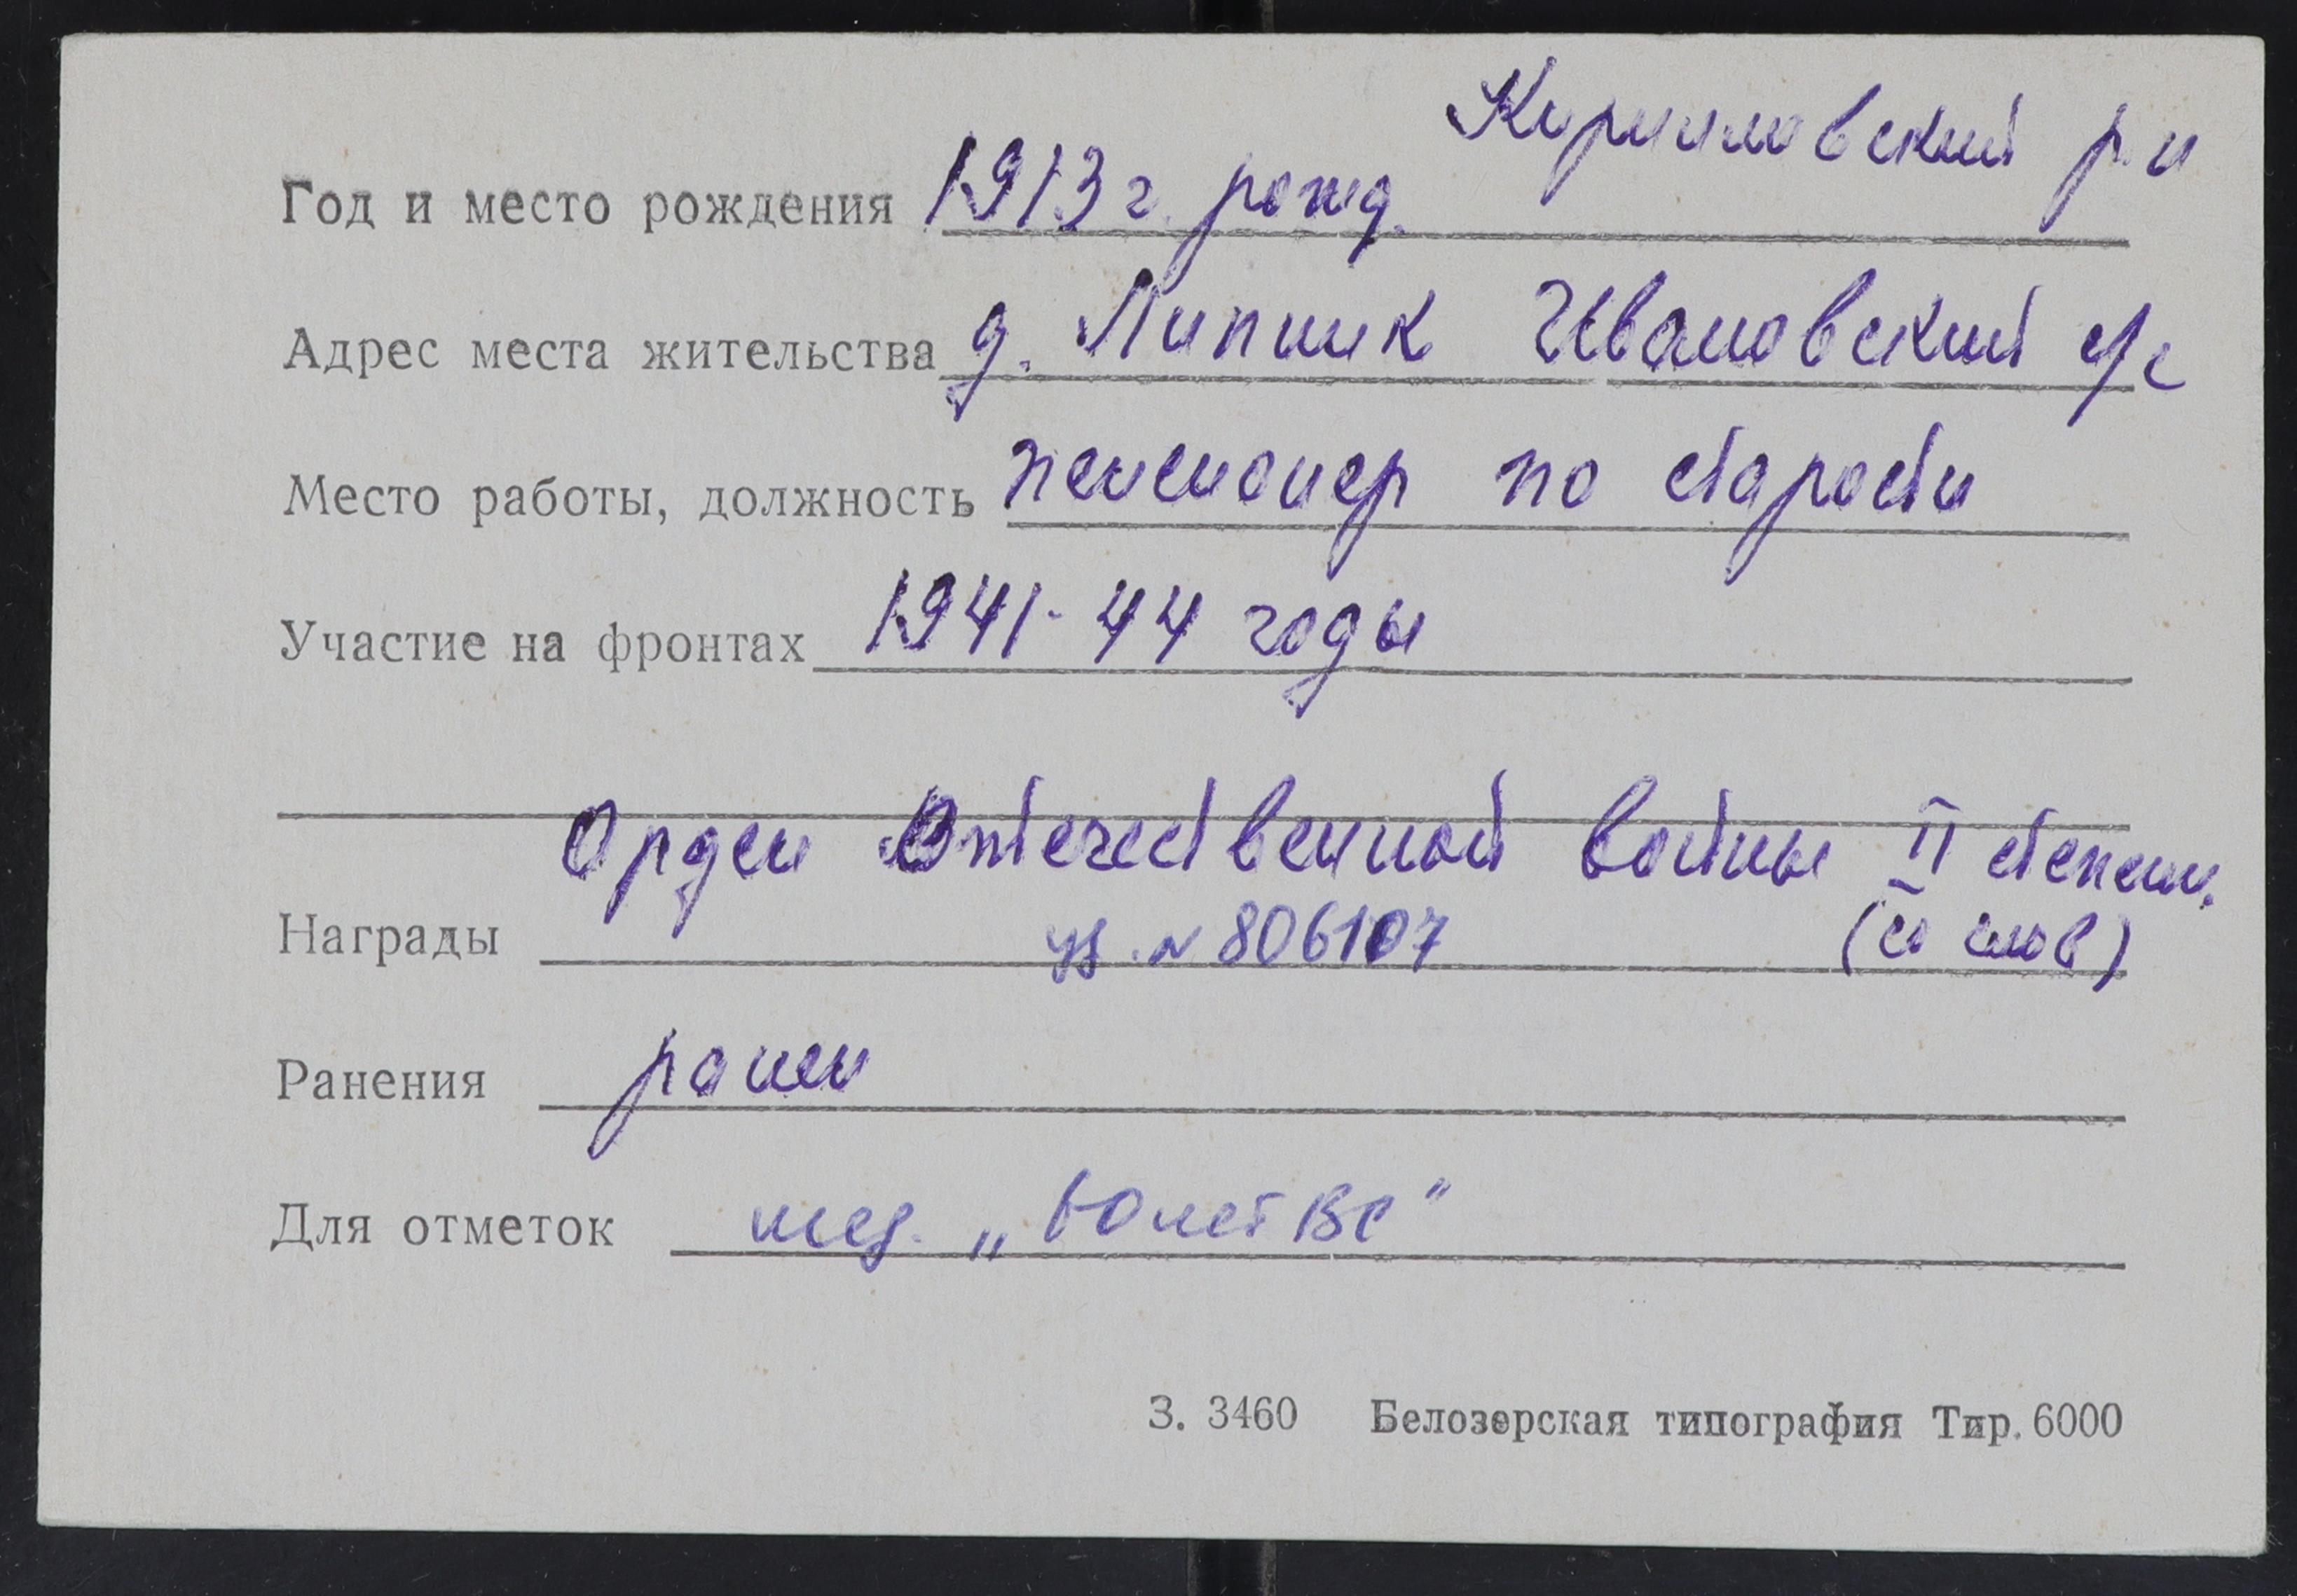 Кирилловский р-н
Год и место рождения 1913 г. рожд.
Адрес места жительства д. Липник Ивановский с/с
Место работы, должность пенсионер по старости
Участие на фронтах 1941-44 годы
Орден Отечественной войны II степени.
Награды уд. № 806107 (со слов)
Ранения ранен
Для отметок мед. „60 лет ВС"
З. 3460 Белозерская типография Тир. 6000